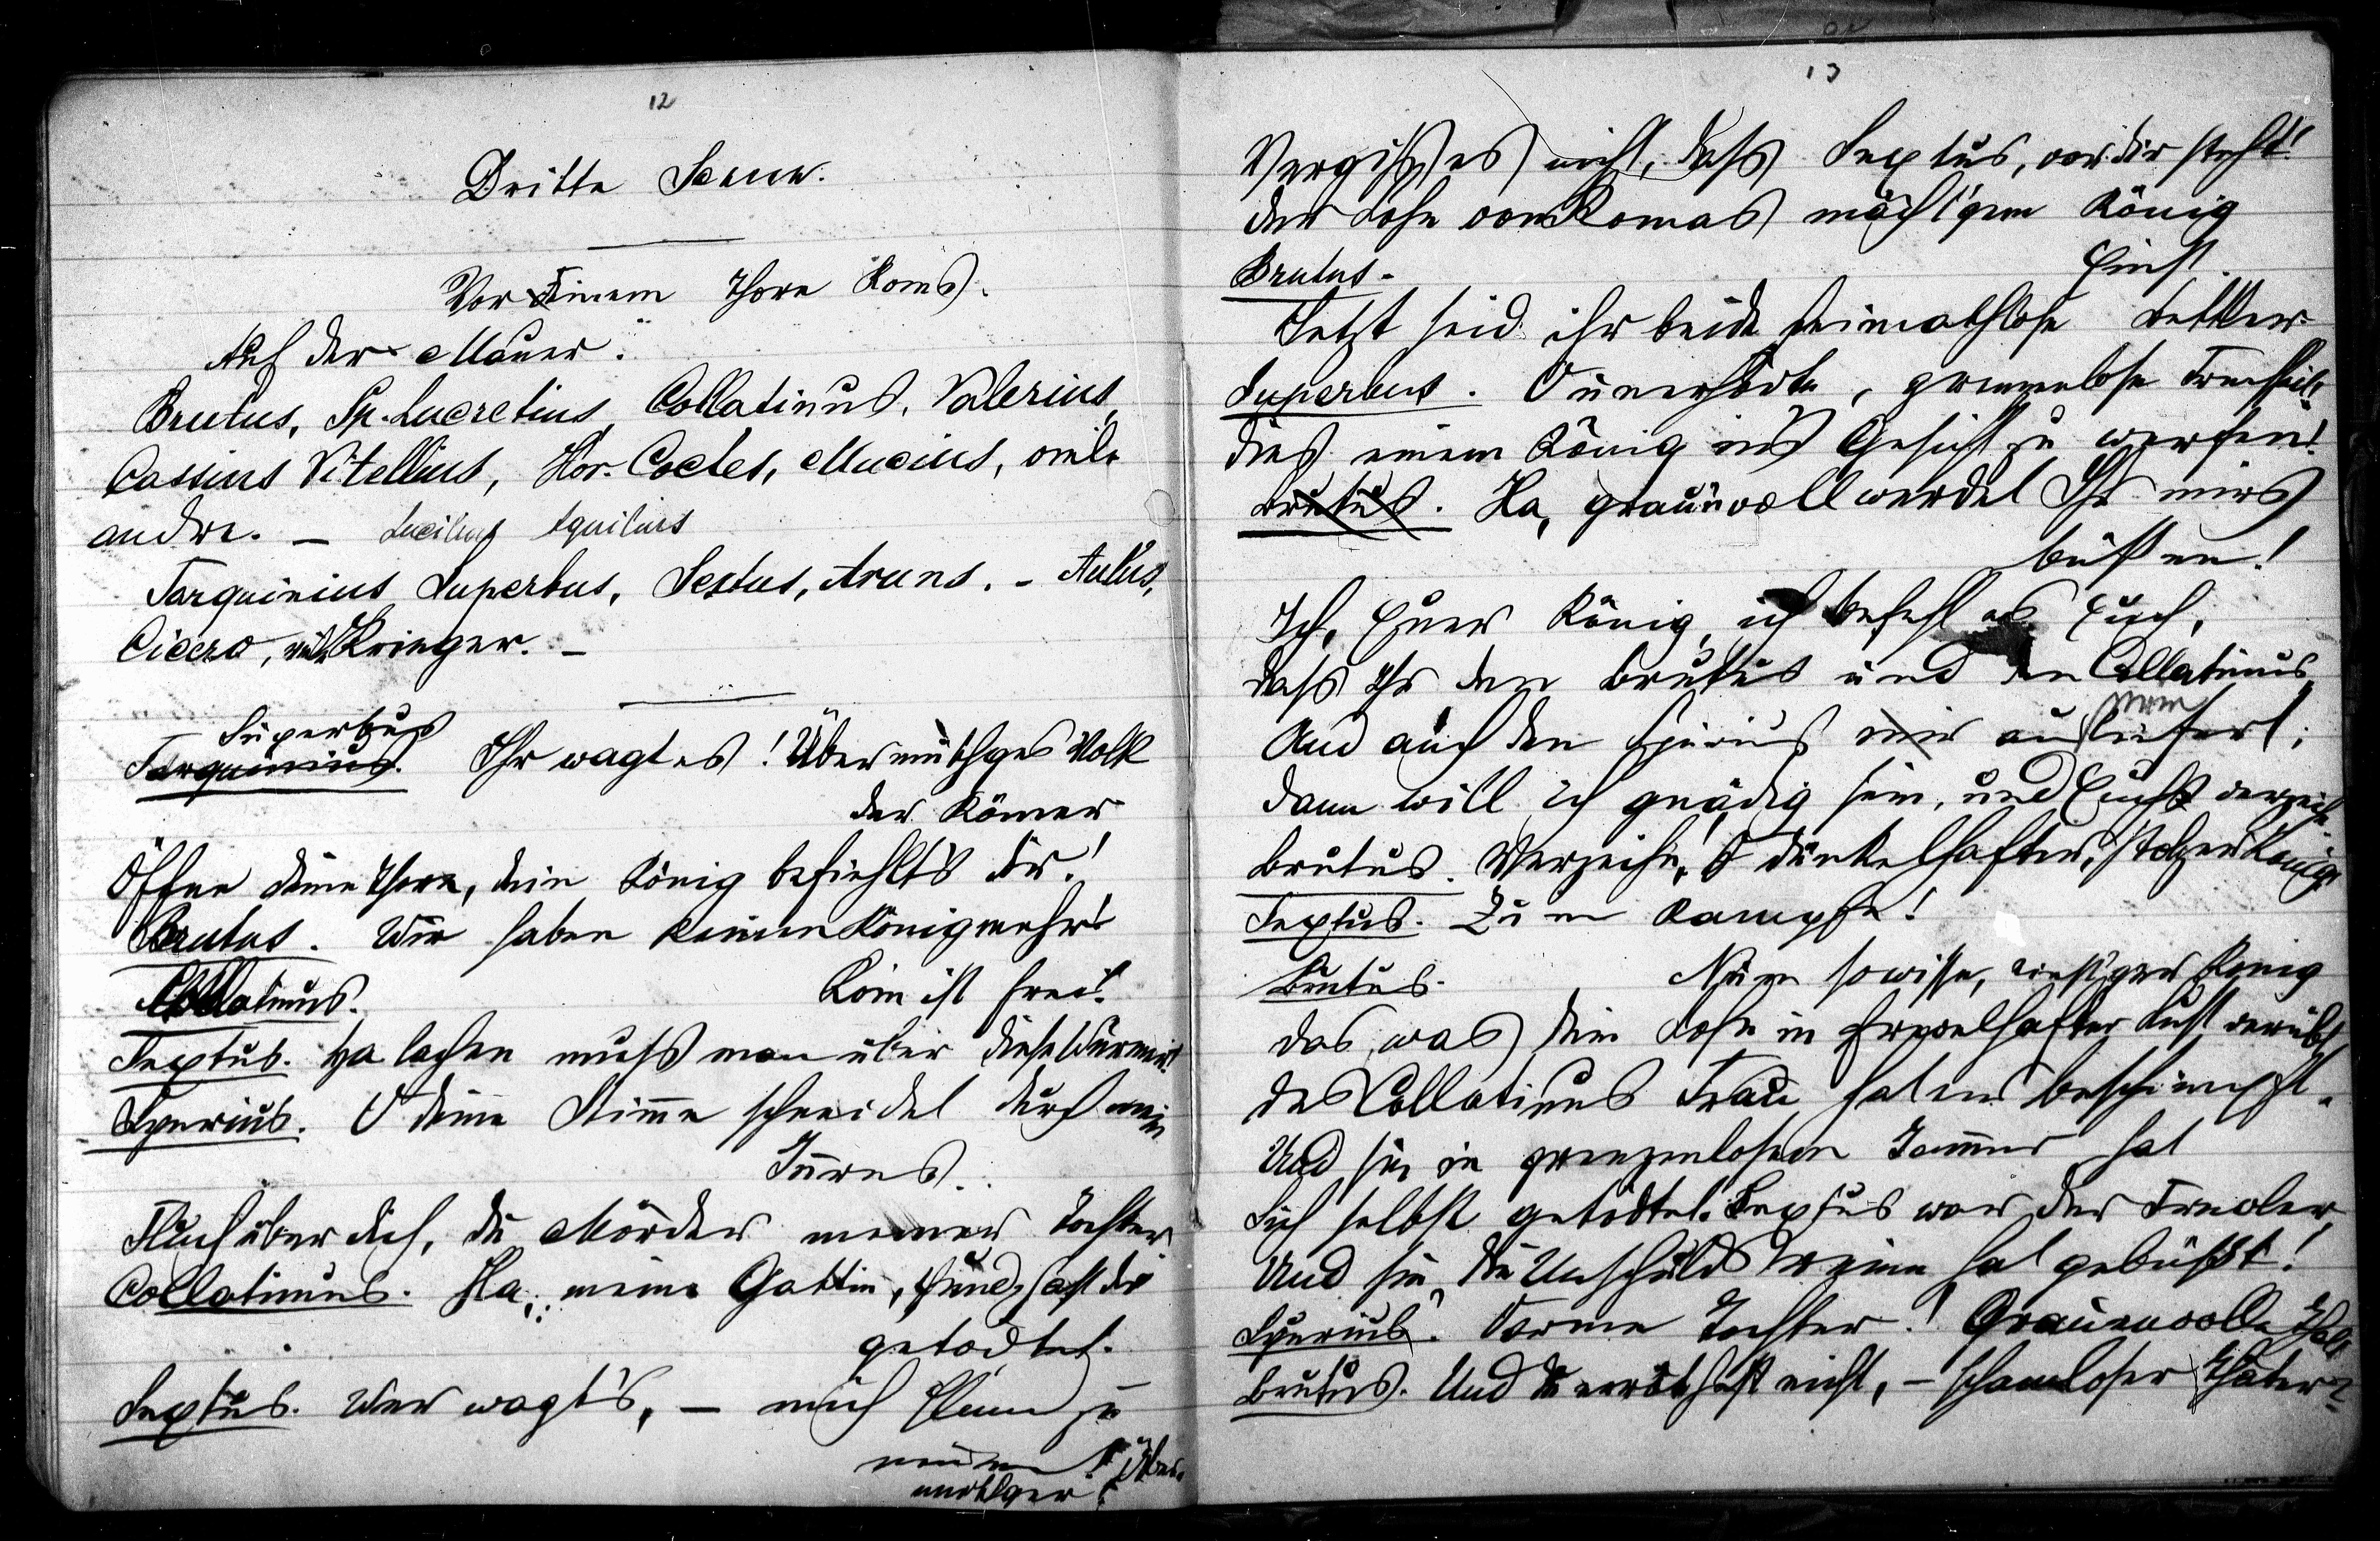 12
Dritte Scene.
Vor einem Thore Roms.
Auf der Mauer:
Brutus, Sp. Lucretius, Collatinus, Valerius,
Cassius Vitellius, Hor. Cocles, Mucius, viele
andre. — Lucilius Aquilius
Tarquinius Superbus, Sextus, Aruns. – Aulus,
Cicero, viele Krieger. –
Superbus
Tarquinius. Ihr wagt es! Übermüthges Volk
der Römer
Öffne deine Thore, dein König befiehlt's dir!
Brutus. Wir haben keinen König mehr!
Collatinus. Rom ist frei!
Sextus. Ha lachen muss man über diese Würmer!
Spurius. O deine Stimme schneidet durch mein
Innres.
Fluch über dich, du Mörder meiner Tochter
Collatinus. Ha, meine Gattin, Hund, hast du
getödtet.
Sextus. Wer wagt's, – mich Hund zu
nennen! Über-
müthger!
13
Vergiss es nicht, dass Sextus, vor dir steht!
der Sohn von Romas mächt'gem König
Brutus. Einst
Jetzt seid ihr beide heimathlose Bettler
Superbus. O unerhörte, grenzenlose Frechheit,
dies einem König ins Gesicht zu werfen!
Brutus. Ha, grauenvoll werdet Ihr mirs
büßen!
Ich, Euer König, ich befehl es Euch,
dass Ihr den Brutus und den Collatinus
Und auch den Spurius mir ausliefert;
dann will ich gnädig sein, und Euch verzeihn
Brutus. Verzeihn! O dünkelhafter, stolzer König!
Sextus. Zum Kampfe!
Brutus. Nun so wisse, einst'ger König
das, was dein Sohn in frevelhafter Lust verübt,
des Collatinus Frau hat er beschimpft.
Und sie in grenzenlosem Jammer hat
Sich selbst getödtet. Sextus war der Frevler,
Und sie, die Unschuldsreine hat gebüßt!
Spurius. O arme Tochter! Grauenvolle That
Brutus. Und du erröthest nicht, – schamloser Thäter?